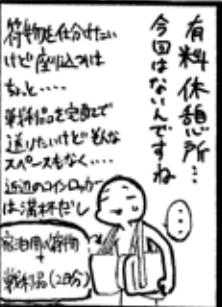 有料休憩所…
今回はないんですね
荷物を仕分けたい
けど座り込つれは
ちょっと‥‥
戦利品を宅配で
送りたいけどそんな
スペースもなく‥‥
近辺のコインロッカー
は満杯だし
…
宿泊用の荷物
+
戦利品(2日分)